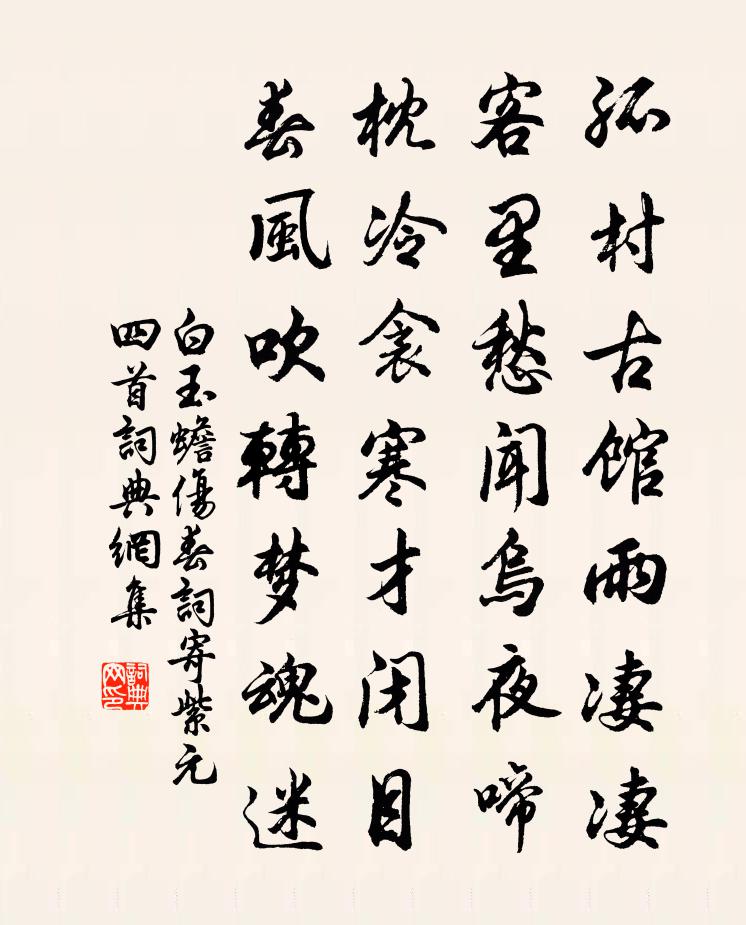 孤村古館雨凄凄
客里愁聞烏夜啼
枕冷衾寒才闭目
春風吹轉梦魂迷
白玉蟾傷春詞寄紫元
四首詞典網集
詞典
网印